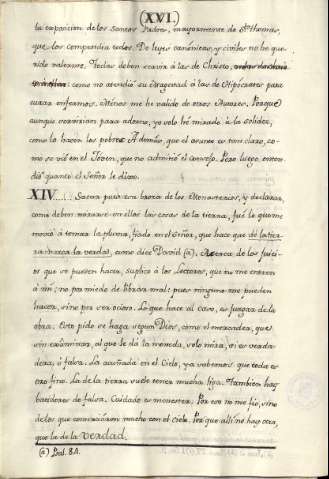 (XVI.)
la exposicion de los Santos Padres, mayormente de Sto. Thomas,
que los compendia todos. De leyes canónicas, y civiles no he que-
rido valerme. Todas deben servir á la de Christo,
como no atendió su Magestad á las de Hipócrates para
curar enfermos. Menos me he valido de otros Autores. Porque
aunque servirían para adorno, yo solo he mirado á lo sólido,
como lo hacen los pobres. A demás, que el asunto es tan claro, co-
mo se vé en el Joven, que no admitió el consejo. Pero luego enten-
dió quanto el Señor le dixo.
XIV..... Sacra para una basta de los Monasterios, y declarar
como deben mirarse en ellos las cosas de la tierra, fué lo que me
movió á tomar la pluma, fiado en el Señor, que hace que de la tier-
ra nazca la verdad, como dice David (a). Acerca de los juici-
os que se pueden hacer, suplico á los Lectores, que no me crean
á mí; no por miedo de que hablen mal: pues ninguno me pueden
hacer, sino por ser ocioso. Lo que hace al caso, es juzgar de la
obra. Esto pido se haga segun Dios, como el mercader, que
sin exâminar, al que le dá la moneda, solo mira, si es verda-
dera, ó falsa. La acuñada en el Cielo, ya sabemos que toda es
oro fino. La de la tierra suele tener mucha liga. Tambien hay
monederos de falsa. Cuidado es menester. Por eso no me fio, sino
de los que comunicáron mucho con el Cielo. Por que allí no hay otra,
que la de la verdad.
(a) Psal. 84.